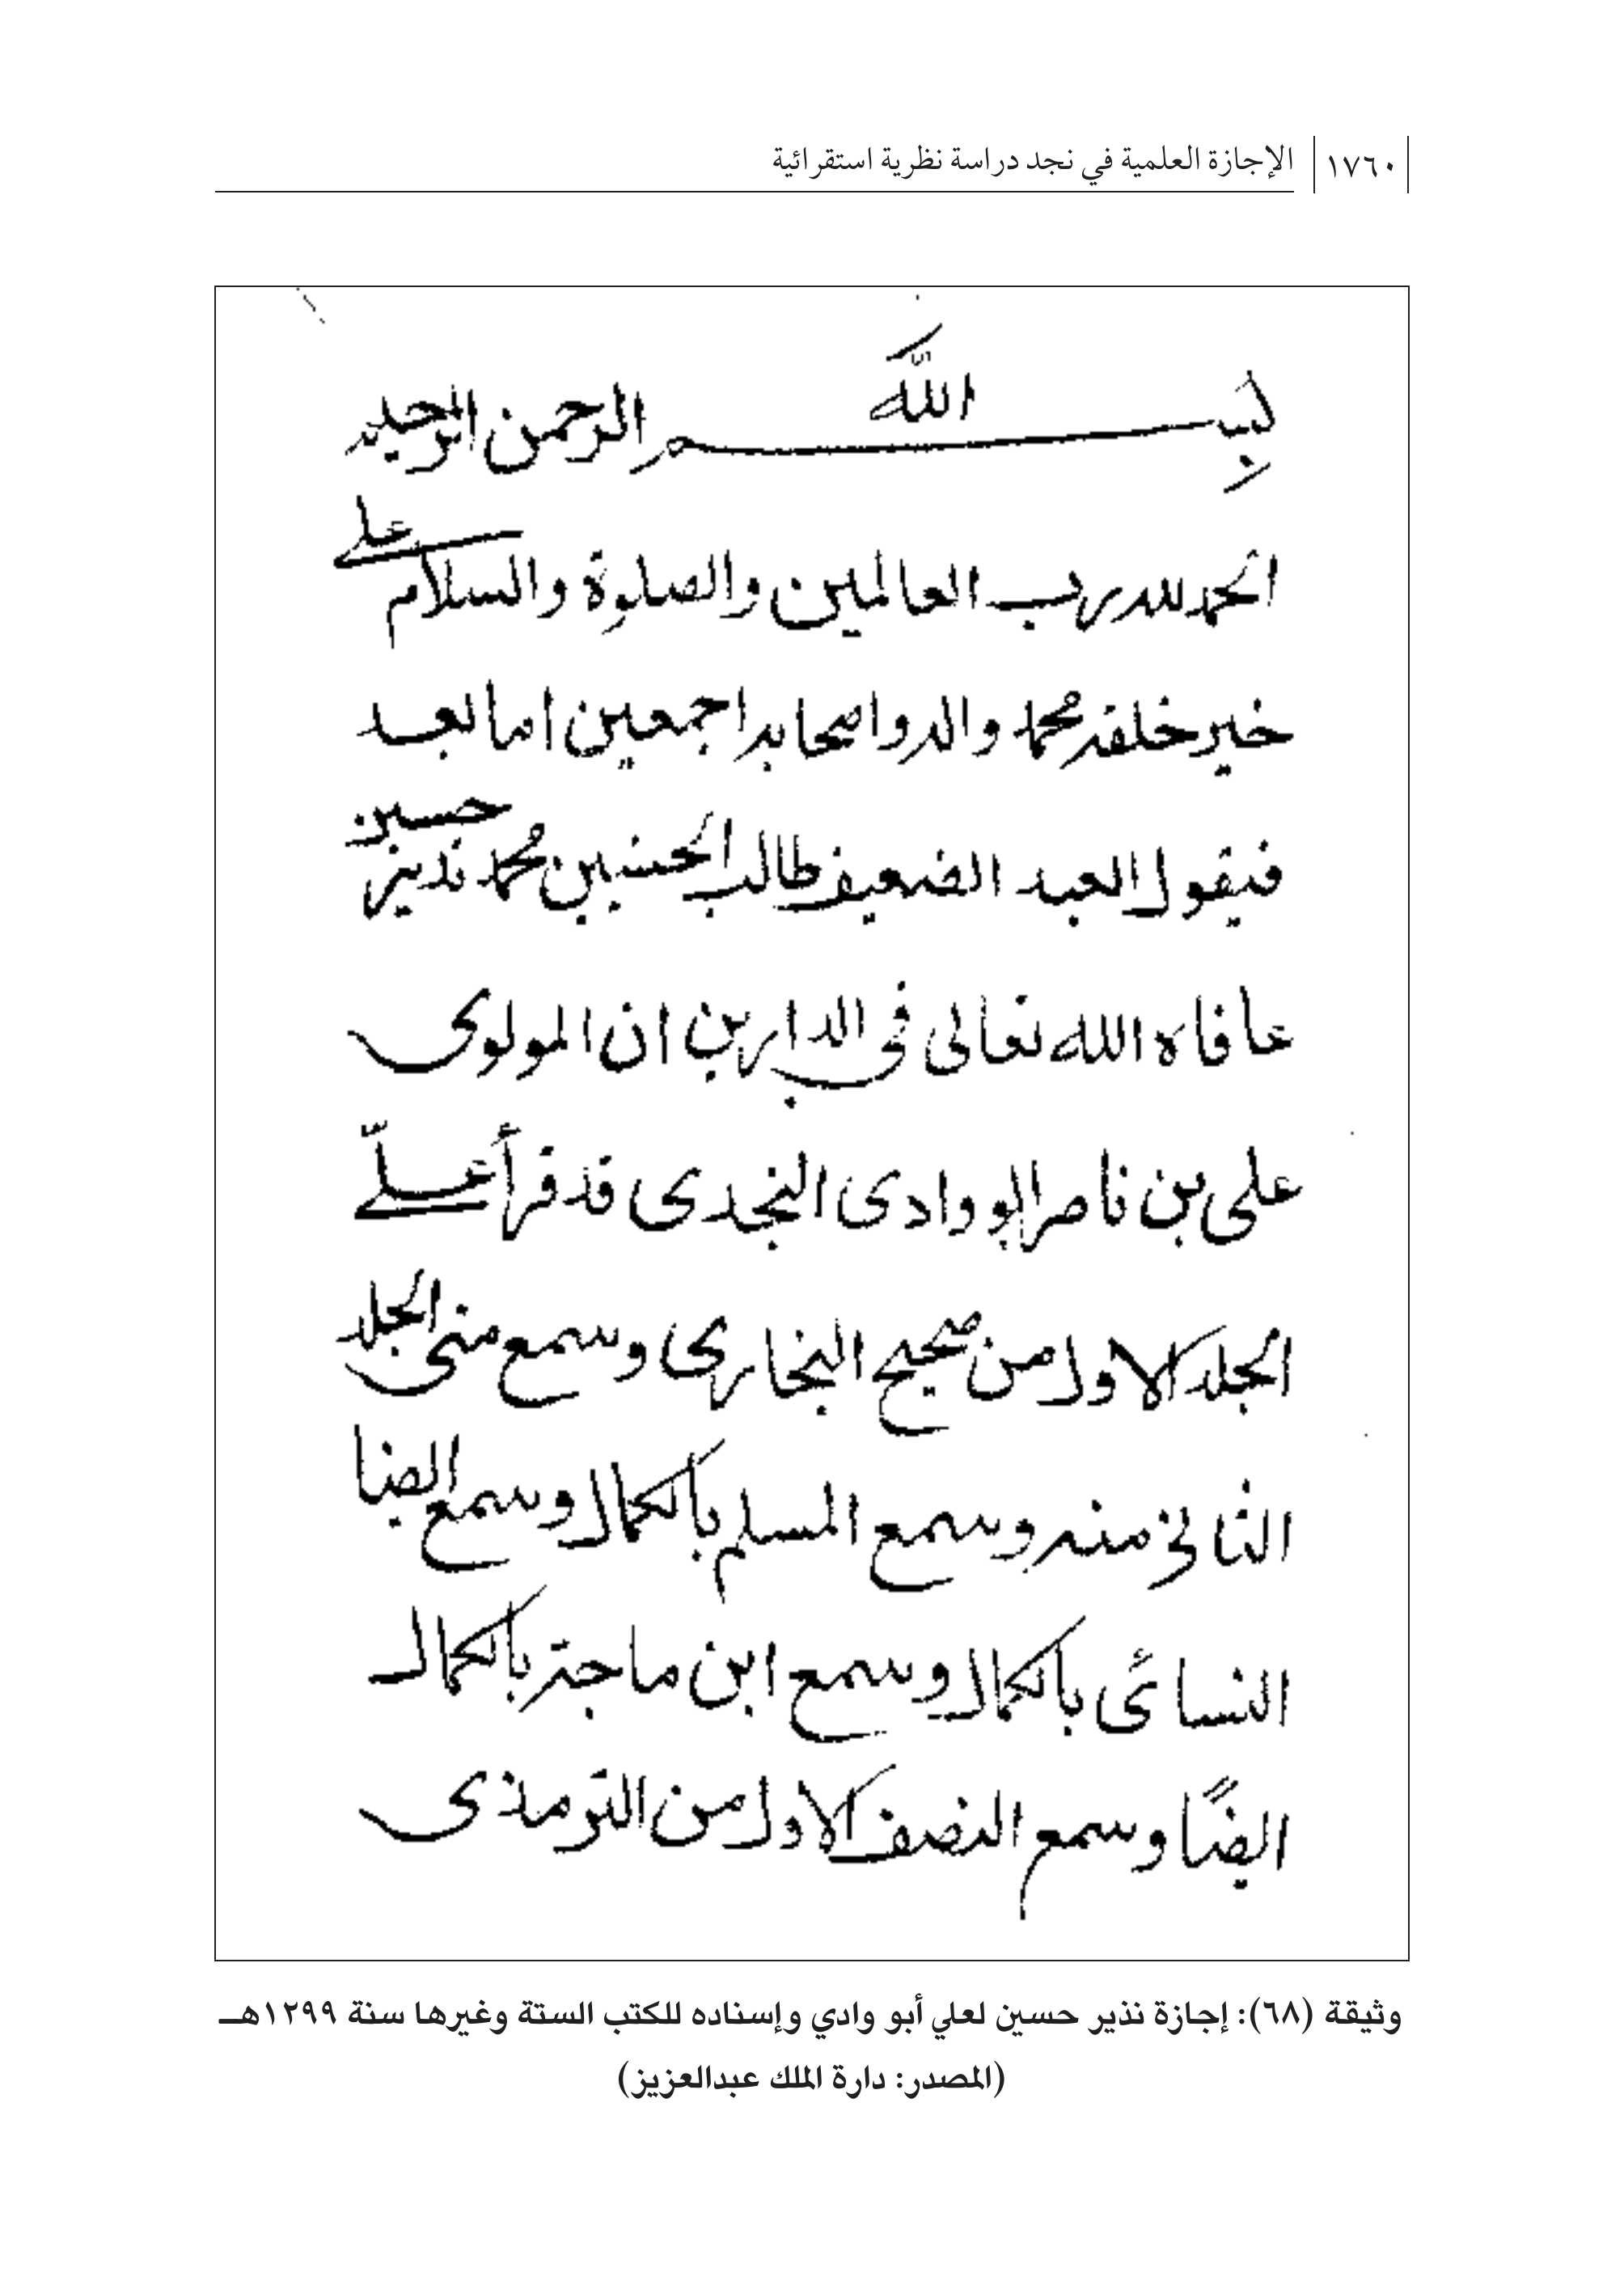 ١٧٦٠ الإجازة العلمية في نجد دراسة نظرية استقرائية
بسم الله الرحمن الرحيم
الحمد لله رب العالمين والصلوة والسلام على
خير خلقه محمد واله واصحابه اجمعين اما بعد
فيقول العبد الضعيف طالب الحسنيين محمد نذير حسين
عافاه الله تعالى في الدارين ان المولوى
على بن ناصر ابو وادى النجدى قد قرأ علىّ
الجلد الاول من صحيح البخارى وسمع منى الجلد
الثانى منه وسمع المسلم بالكمال وسمع ايضا
النسائى بالكمال وسمع ابن ماجة بالكمال
ايضًا وسمع النصف الاول من الترمذى
وثيقة (٦٨): إجازة نذير حسين لعلي أبو وادي وإسناده للكتب الستة وغيرها سنة ١٢٩٩هـ
(المصدر: دارة الملك عبدالعزيز)